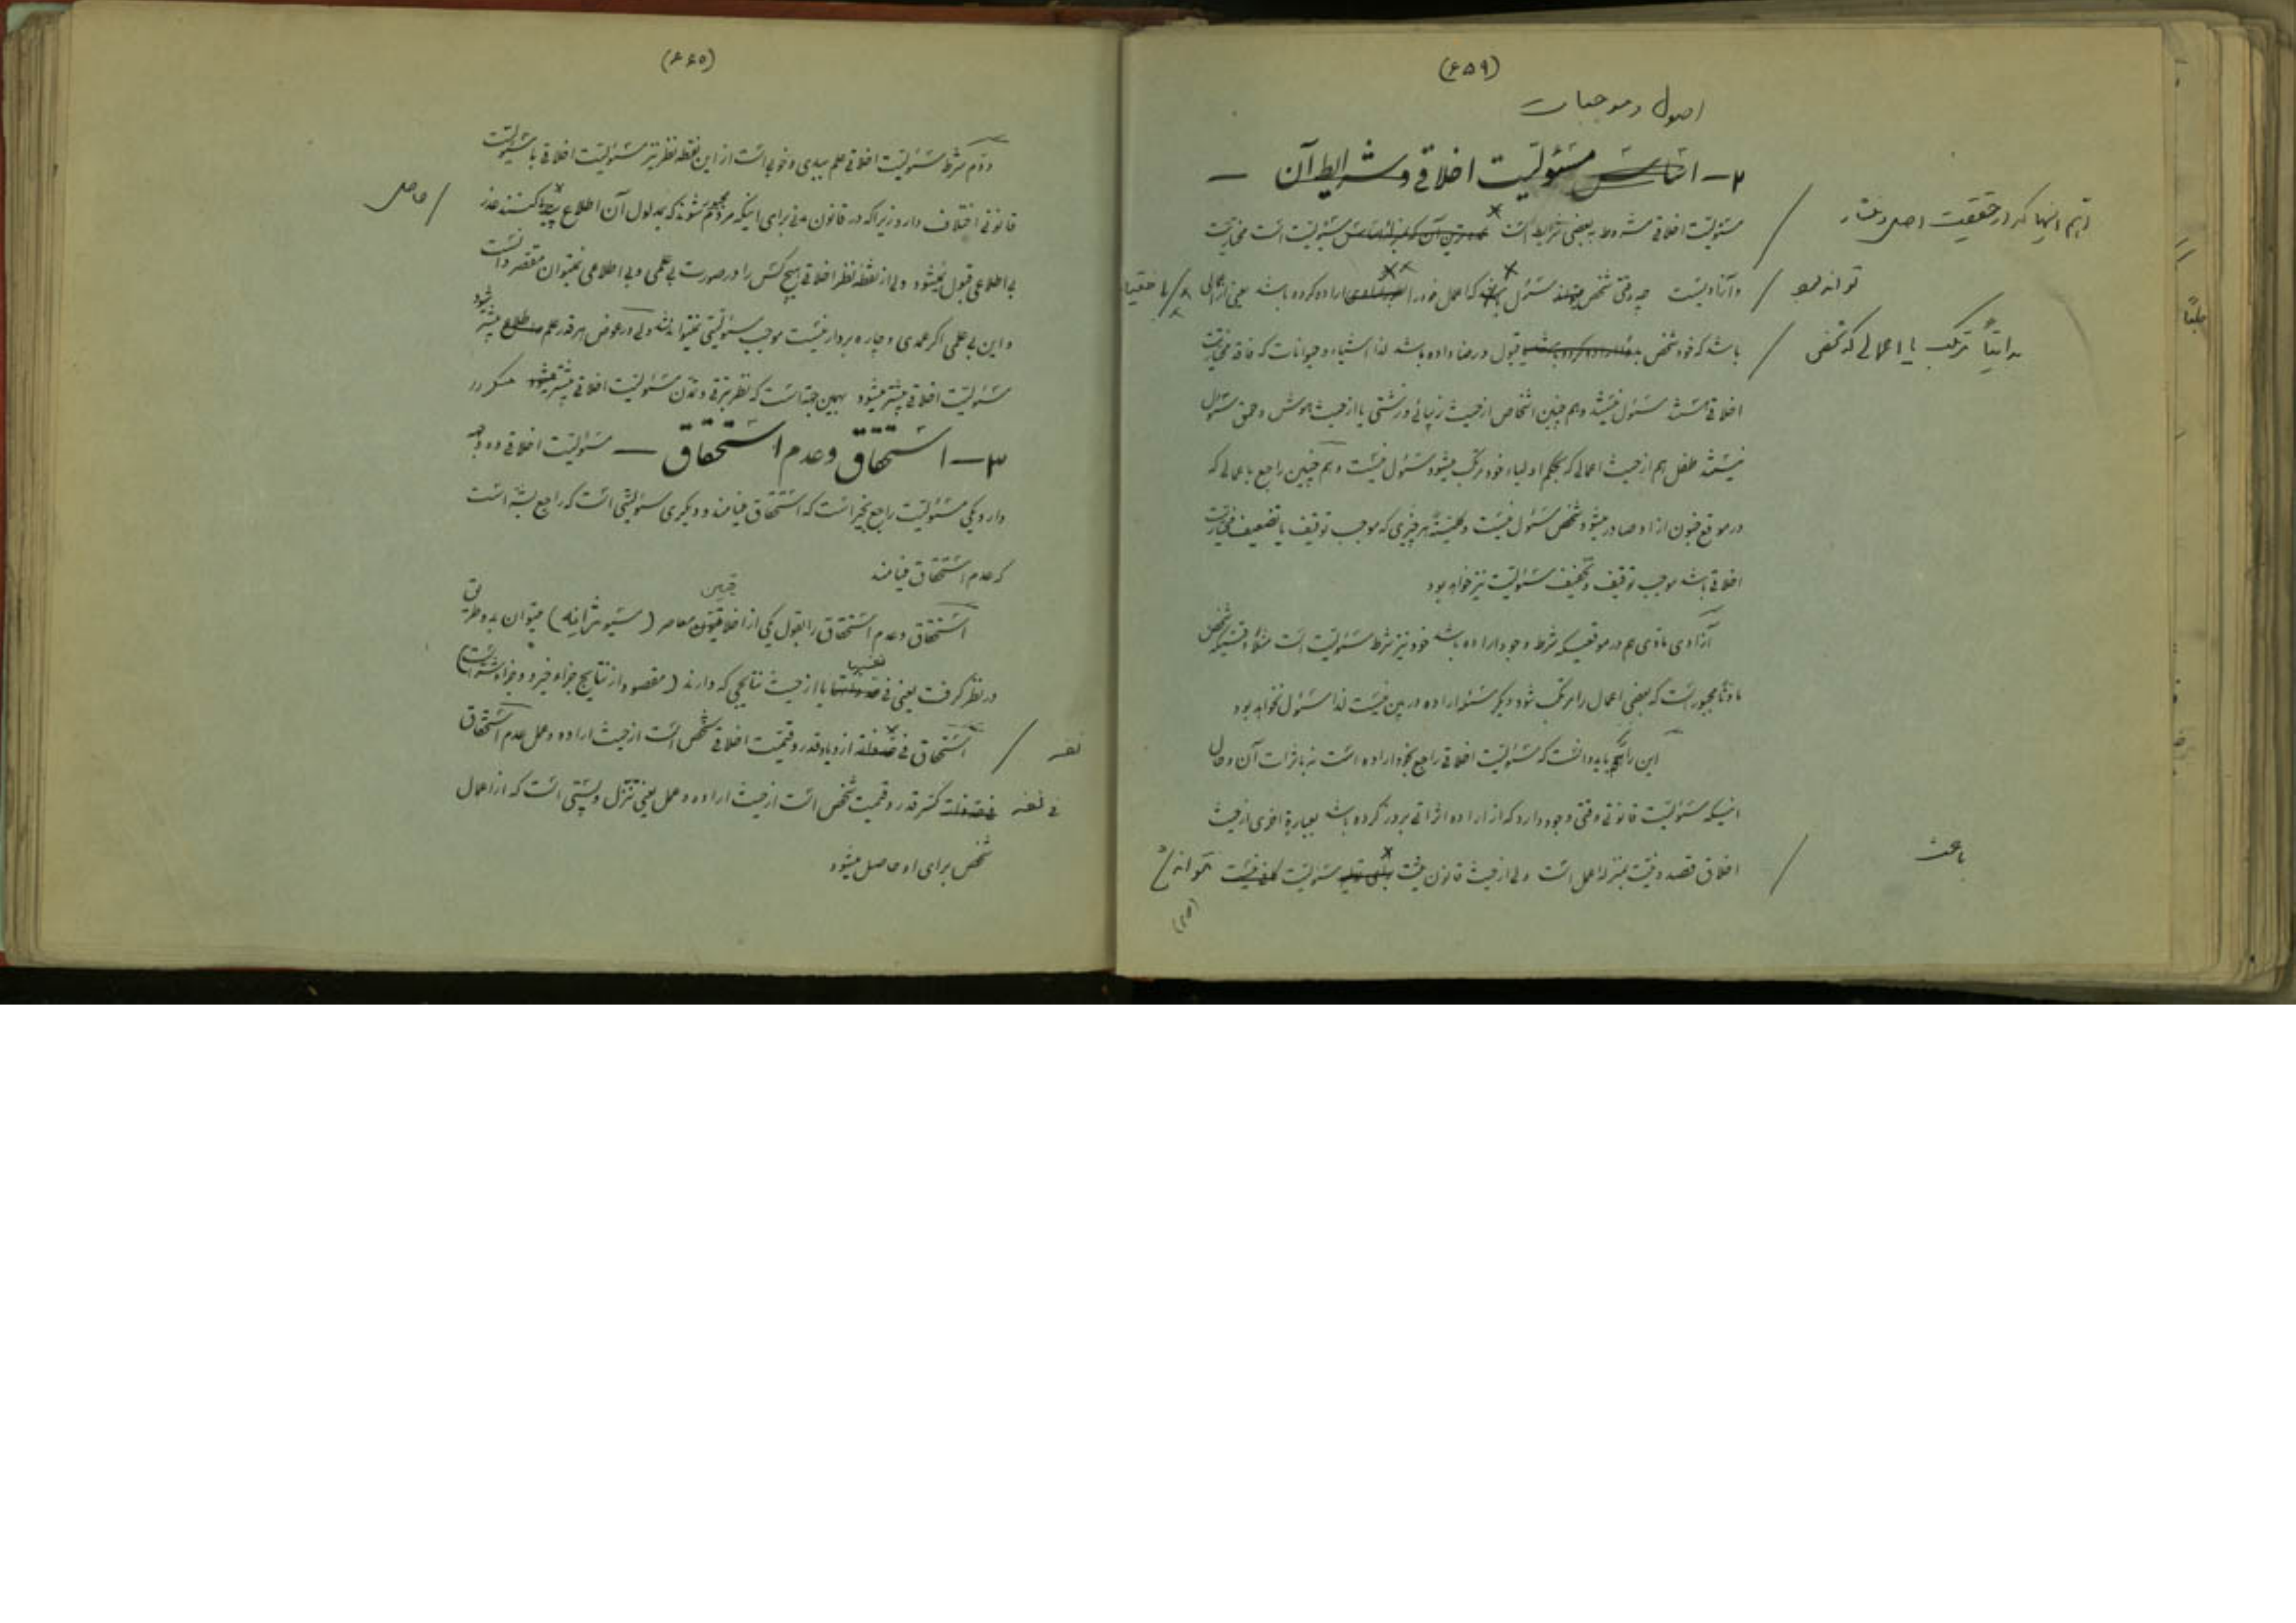 (۴۵۹)
اصول و موجبات
۲ — اساس مسئولیت اخلاقی و شرایط آن —
اهم آنها که در حقیقت اصل و منشأ
مسئولیت اخلاقی مشروط ببعضی شرایط است مسئولیت است مختاریت
تواند بود
و آزادیست چه وقتی شخص مسئول که اعمل خود را اراده کرده باشد یعنی از اعمالی
بدایتاً مرتکب یا اعمالی که شخص
باشد که خود شخص قبول و رضا داده باشد لذا اشیاء و حیوانات که فاقد مختاریت
اخلاقی هستند مسئول نیستند و هم چنین اشخاص از حیث زیبائی و زشتی یا از حیث هوش و حمق مسئول
نیستند طفل هم از حیث اعمالی که بحکم اولیاء خود مرتکب میشود مسئول نیست و هم چنین راجع باعمالی که
در موقع جنون از او صادر میشود شخص مسئول نیست و کلیةً هر چیزی که موجب توقیف یا تضعیف مختاریت
اخلاقی باشد موجب توقیف و تخفیف مسئولیت نیز خواهد بود
آزادی مادی هم در موقعیکه شرط وجود اراده باشد خود نیز شرط مسئولیت است مثلاً وقتیکه شخص
مادةً مجبور است که بعضی اعمال را مرتکب شود دیگر مسئله اراده در بین نیست لذا مسئول نخواهد بود
این را هم باید دانست که مسئولیت اخلاقی راجع بخود اراده است نه باثرات آن و حال
اینکه مسئولیت قانونی وقتی وجود دارد که از اراده اثراتی بروز کرده باشد بعبارة اخری از حیث
باعث
اخلاق قصد و نیت بمنزله عمل است ولی از حیث قانون نیت مسئولیت نتواند
(۴۶۰)
دوم شرط مسئولیت اخلاقی علم ببدی و خوبی است از این نقطه نظر نیز مسئولیت اخلاقی با مسئولیت
حاصل
قانونی اختلاف دارد زیرا که در قانون مدنی برای اینکه مردم مجبور شوند که بمدلول آن اطلاع کنند عذر
بی اطلاعی قبول نمیشود ولی از نقطه نظر اخلاقی هیچ کس را در صورت بی علمی و بی اطلاعی نمیتوان مقصر دانست
و این بی علمی اگر عمدی و چاره بردار نیست موجب مسئولیتی نمیتواند شد ولی در عوض هر قدر علم بیشتر شود
مسئولیت اخلاقی بیشتر میشود بهمین جهة است که نظر بترقی و تمدن مسئولیت اخلاقی بیشتر
۳ — استحقاق و عدم استحقاق — مسئولیت اخلاقی دو وجه
دارد یکی مسئولیت راجع بخیر است که استحقاق مینامند و دیگری مسئولیتی است که راجع بشر است
که عدم استحقاق مینامند
استحقاق و عدم استحقاق را بقول یکی از اخلاقیین معاصر (مسیو ژانه) میتوان بدو طریق
در نظر گرفت یعنی فی نفسها یا از حیث نتایجی که دارند (مقصود از نتایج جزاء خیر و جزاء شر است)
نفسه
استحقاق فی ازدیاد قدر و قیمت اخلاقی شخص است از حیث اراده و عمل عدم استحقاق
فی نفسه کسر قدر و قیمت شخص است از حیث اراده و عمل یعنی تنزل و پستی است که از اعمال
شخص برای او حاصل میشود